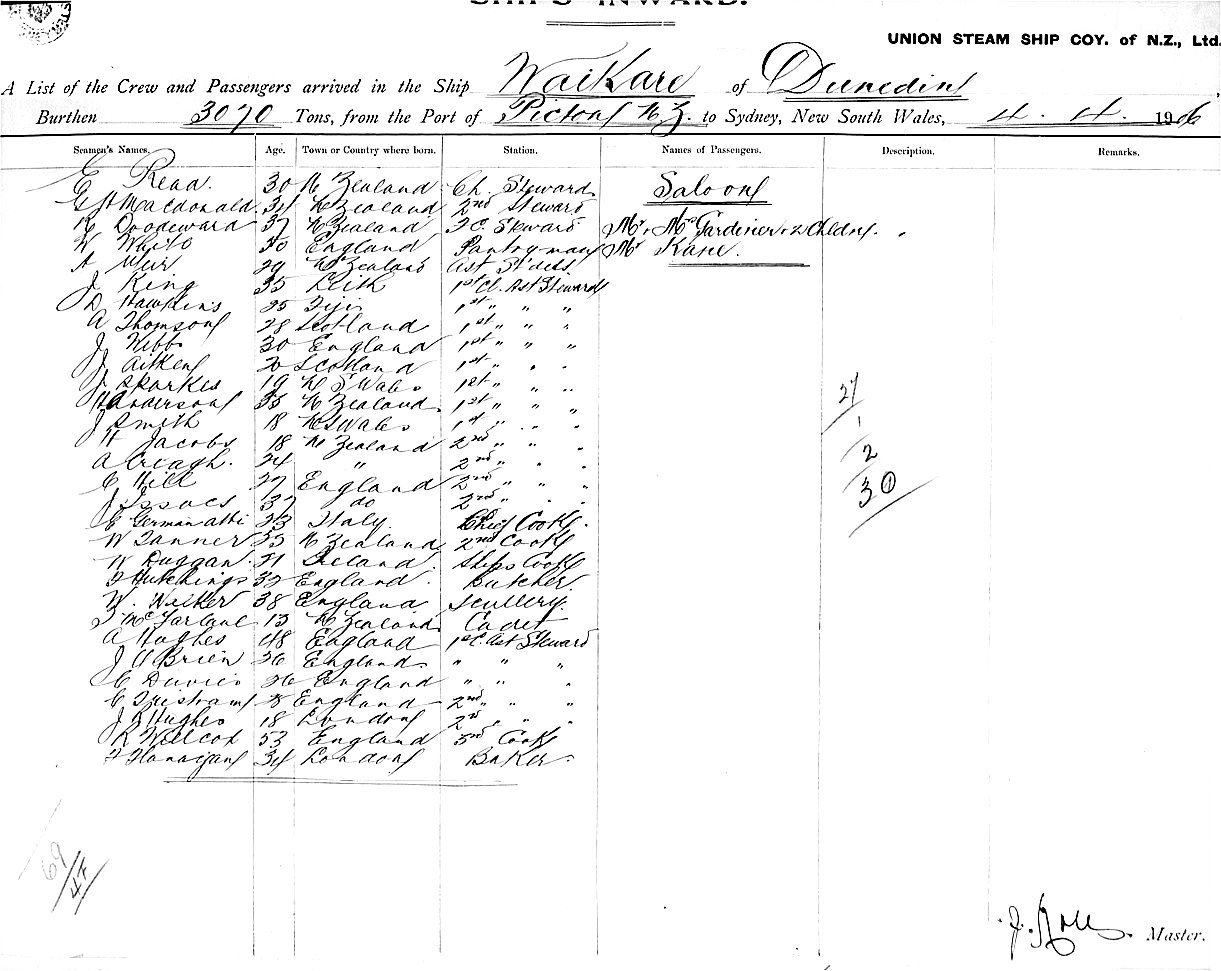 SHIPS INWARD.
UNION STEAM SHIP COY. of N.Z., Ltd.
A List of the Crew and Passengers arrived in the Ship Waikare of Dunedin,
Burthen 3070 Tons, from the Port of Picton N.Z. to Sydney, New South Wales, 4. 4. 190
Seamen's Names. Age. Town or Country where born. Station. Names of Passengers. Description. Remarks.
E Read. 30 N Zealand Ch. Steward Saloon
Macdonald 34 N Zealand 2nd Steward
Doodeward 37 N Zealand Steward Mr, Mrs Gardiner + 2 Chldn.
W 30 England Pantryman Mr Kane.
A Weir 29 N Zealand Ast St'dess
J King 35 Leith 1st Cl. Ast Steward
D Hawkins 25 Fiji 1st " " "
A Thomson 28 Scotland 1st " " "
J Webb 30 England 1st " " "
J Aitken 20 Scotland 1st " " "
J Sparkes 19 N S Wales 1st " " "
H Anderson 35 N Zealand. 1st " " " 27
J Smith 18 N S Wales 1st " " " 1
H Jacobs 18 N Zealand 2nd " " "
A Creagh. 24 " 2nd " " " 2
C Hill 27 England 2nd " " " 30
J Issacs 37 do 2nd " " "
C 23 Italy. Chief Cook.
W Tanner 35 N Zealand 2nd Cook
W Duggan. 21 Ireland. Ships Cook
Hutchings 32 England. Butcher
W. Walker 38 England Scullery.
McFarlane 13 N Zealand Cadet
A Hughes 48 England 1st C. Ast Steward
J O'Brien 26 England. " " "
C Davies 26 England " " "
C Tristram England 2nd " " "
J Hughes 18 London 2nd " " "
R Willcox 53 England 3rd Cook
F Flanagan 34 London Baker.
69
47
J. Master.